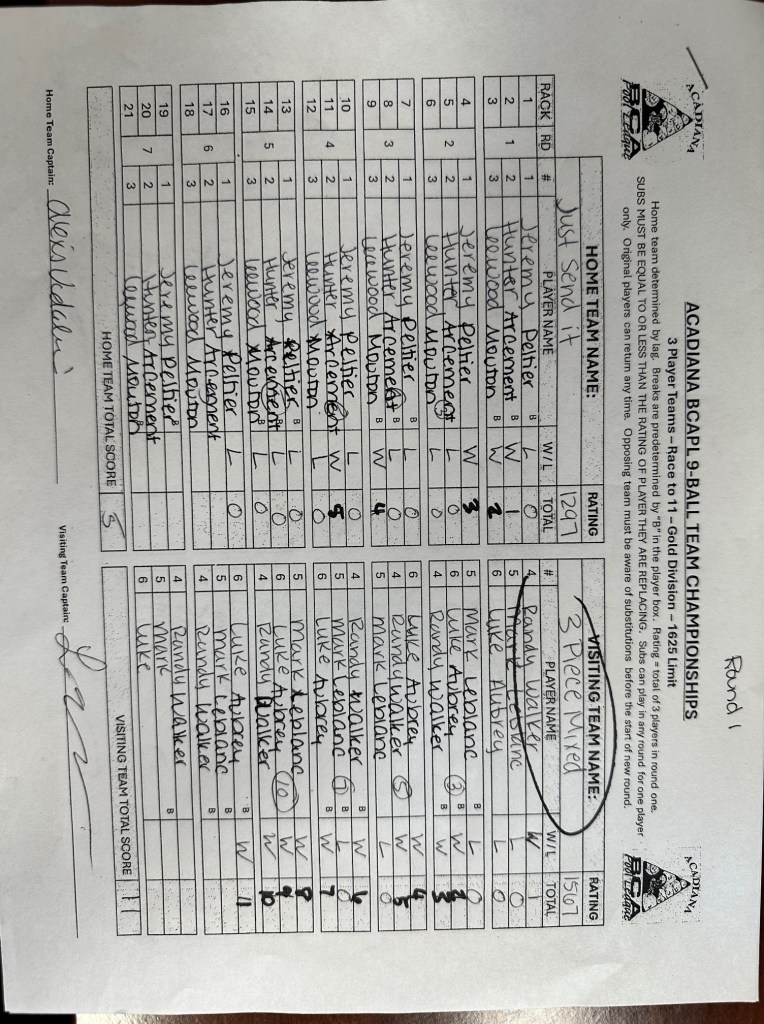 Round 1
ACADIANA BCA Pool League
ACADIANA BCAPL 9-BALL TEAM CHAMPIONSHIPS
ACADIANA BCA Pool League
3 Player Teams – Race to 11 – Gold Division – 1625 Limit
Home team determined by lag. Breaks are predetermined by "B" in the player box. Rating = total of 3 players in round one.
SUBS MUST BE EQUAL TO OR LESS THAN THE RATING OF PLAYER THEY ARE REPLACING. Subs can play in any round for one player
only. Original players can return any time. Opposing team must be aware of substitutions before the start of new round.
HOME TEAM NAME: RATING VISITING TEAM NAME: RATING
Just Send it 1297 3 Piece Mixed 1567
RACK RD # PLAYER NAME W/L TOTAL # PLAYER NAME W/L TOTAL
1 1 Jeremy Peltier B L 0 4 Randy Walker W 1
2 1 2 Hunter Arcement B W 1 5 Mark Leblanc L 0
3 3 Leewood Mouton B W 2 6 Luke Aubrey L 0
4 1 Jeremy Peltier W 3 5 Mark Leblanc B L 0
5 2 2 Hunter Arcement L 0 6 Luke Aubrey 2 B W 2
6 3 Leewood Mouton 3 L 0 4 Randy Walker B W 3
7 1 Jeremy Peltier B L 0 6 Luke Aubrey W 4
8 3 2 Hunter Arcement B L 0 4 Randy Walker 5 W 5
9 3 Leewood Mouton B W 4 5 Mark Leblanc L 0
10 1 Jeremy Peltier L 0 4 Randy Walker B W 6
11 4 2 Hunter Arcement W 5 5 Mark Leblanc B L 0
12 3 Leewood Mouton L 0 6 Luke Aubrey B W 7
13 1 Jeremy Peltier B L 0 5 Mark Leblanc W 8
14 5 2 Hunter Arcement B L 0 6 Luke Aubrey 10 W 9
15 3 Leewood Mouton B L 0 4 Randy Walker W 10
16 1 Jeremy Peltier L 0 6 Luke Aubrey B W 11
17 6 2 Hunter Arcement 5 Mark Leblanc B
18 3 Leewood Mouton 4 Randy Walker B
19 1 Jeremy Peltier B 4 Randy Walker B
20 7 2 Hunter Arcement B 5 Mark
21 3 Leewood Mouton B 6 Luke
HOME TEAM TOTAL SCORE 5 VISITING TEAM TOTAL SCORE 11
Home Team Captain: Visiting Team Captain: